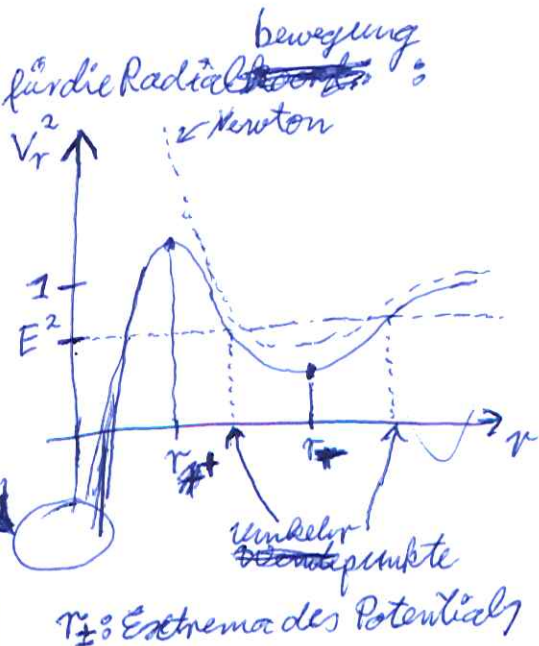 bewegung
für die Radial :
V_r^2
Newton
1
E^2
r_+
r
Umkehr
punkte
r_±: Extrema des Potentials